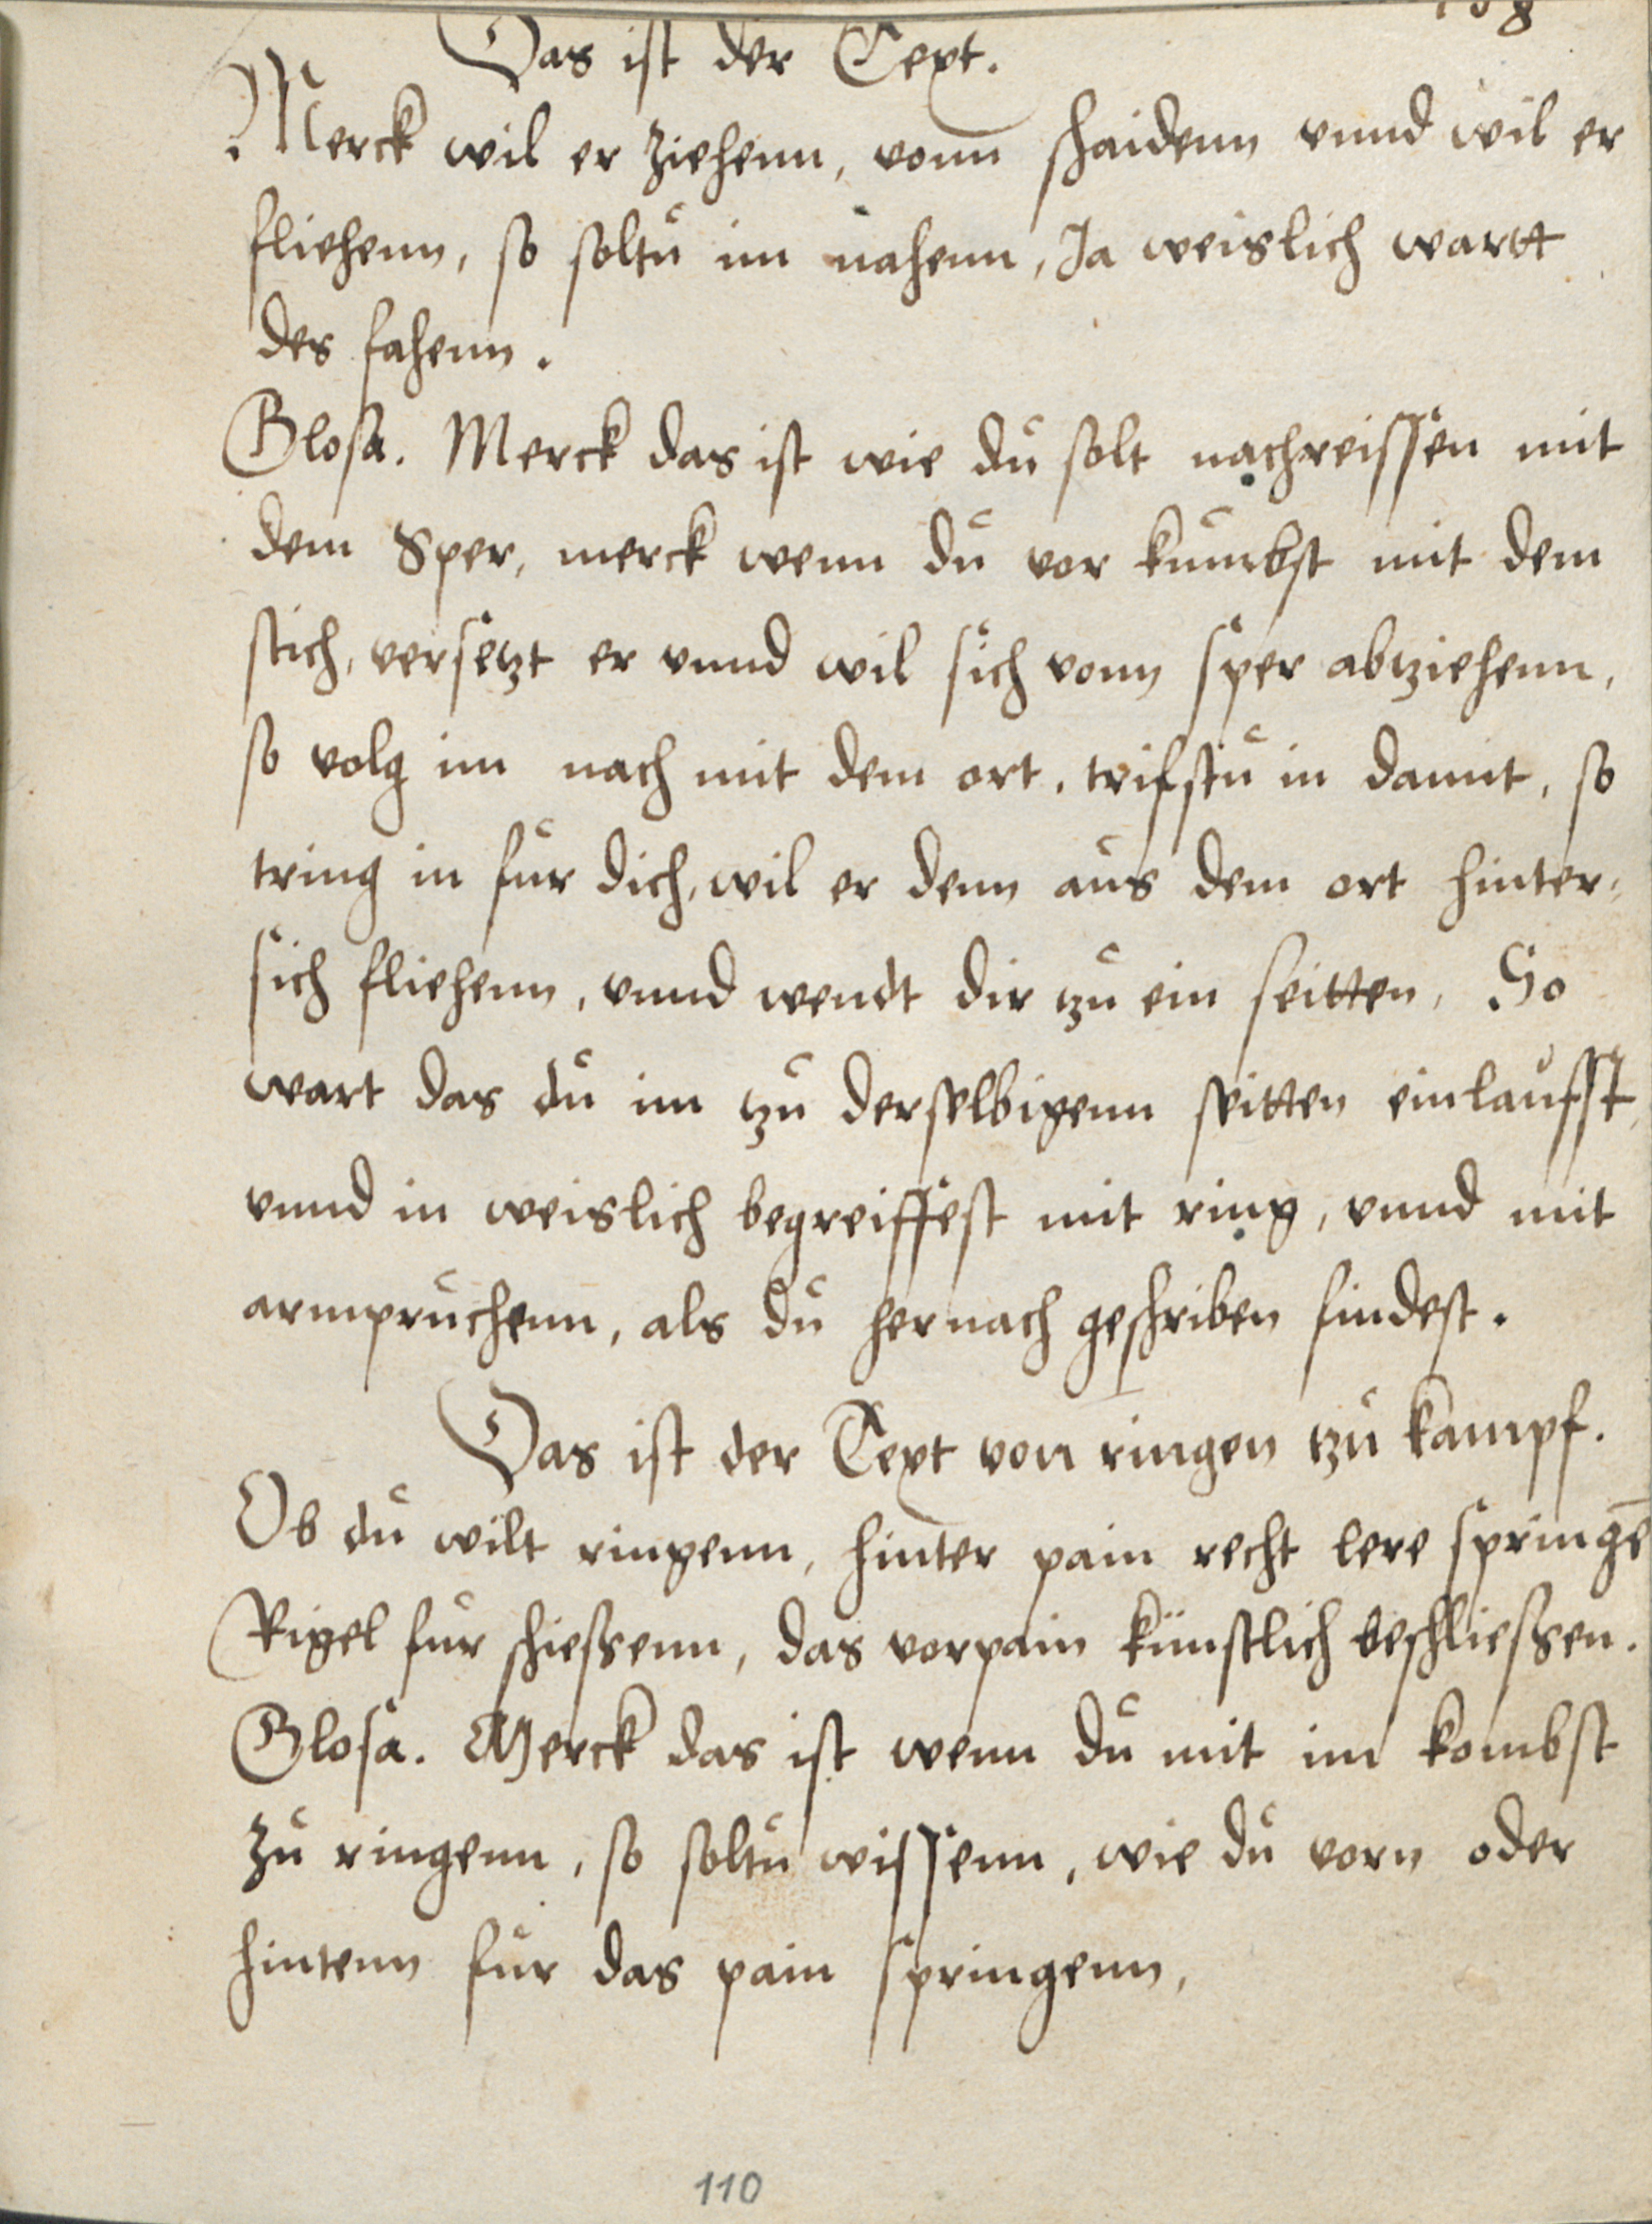 Das ist der Text.
Merck wil er ziehenn, vonn schaidenn vnnd wil er
fliehenn, so soltu im nahenn, Ja weislich wartt
des fahenn.
Glosa. Merck das ist wie du solt nachreissen mit
dem Sper, merck wenn du vor kumbst mit dem
stich, versetzt er vnnd wil sich vonn sper abziehenn,
so volg im nach mit dem ort, trifstu in damit, so
tring in fur dich, wil er denn aus dem ort hinter,
sich fliehenn, vnnd wendt dir zu ein seitten, So
wart das du im zu derselbigenn seitten einlaufst,
vnnd in weislich begreiffest mit ring, vnnd mit
armpruchenn, als du hernach geschriben findest.
Das ist der Text von ringen zu kampf.
Ob du wilt ringenn, hinter pain recht lere springē
Rigel fur schiessenn, das vorpain künstlich beschliessen.
Glosa. Merck das ist wenn du mit im kombst
zu ringenn, so soltu wissenn, wie du vorn oder
hintenn fur das pain springenn,
110